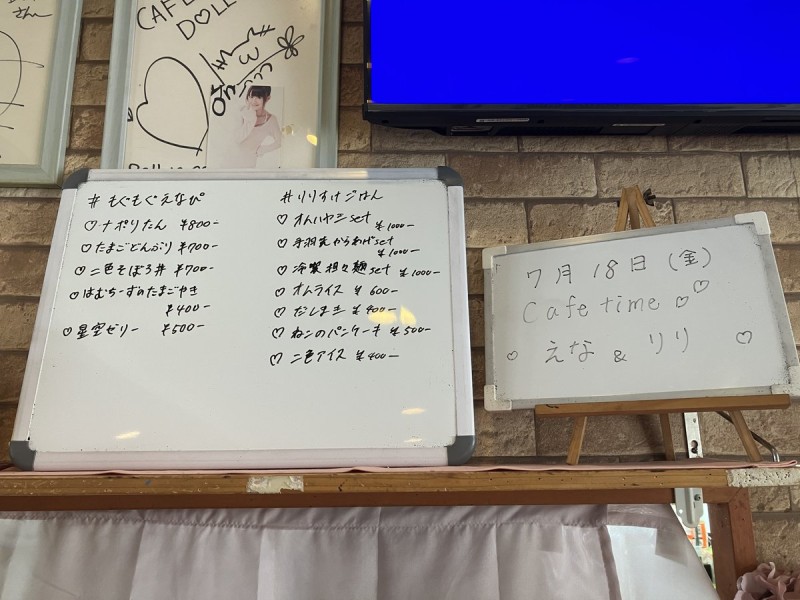 さん
CAFE
DOLL♡
#もぐもぐえなぴ
♡ナポリたん ¥800-
♡たまごどんぶり ¥700-
♡二色そぼろ丼 ¥700-
♡はむちーずのたまごやき
¥400-
♡星空ゼリー ¥500-
#りりすけごはん
♡オムハヤシset
¥1000-
♡手羽先からあげset
¥1000-
♡冷製担々麺set ¥1000-
♡オムライス ¥600-
♡だしまき ¥400-
♡ねこのパンケーキ ¥500-
♡二色アイス ¥400-
7月18日(金)
Cafe time♡♡
♡えな&リリ♡